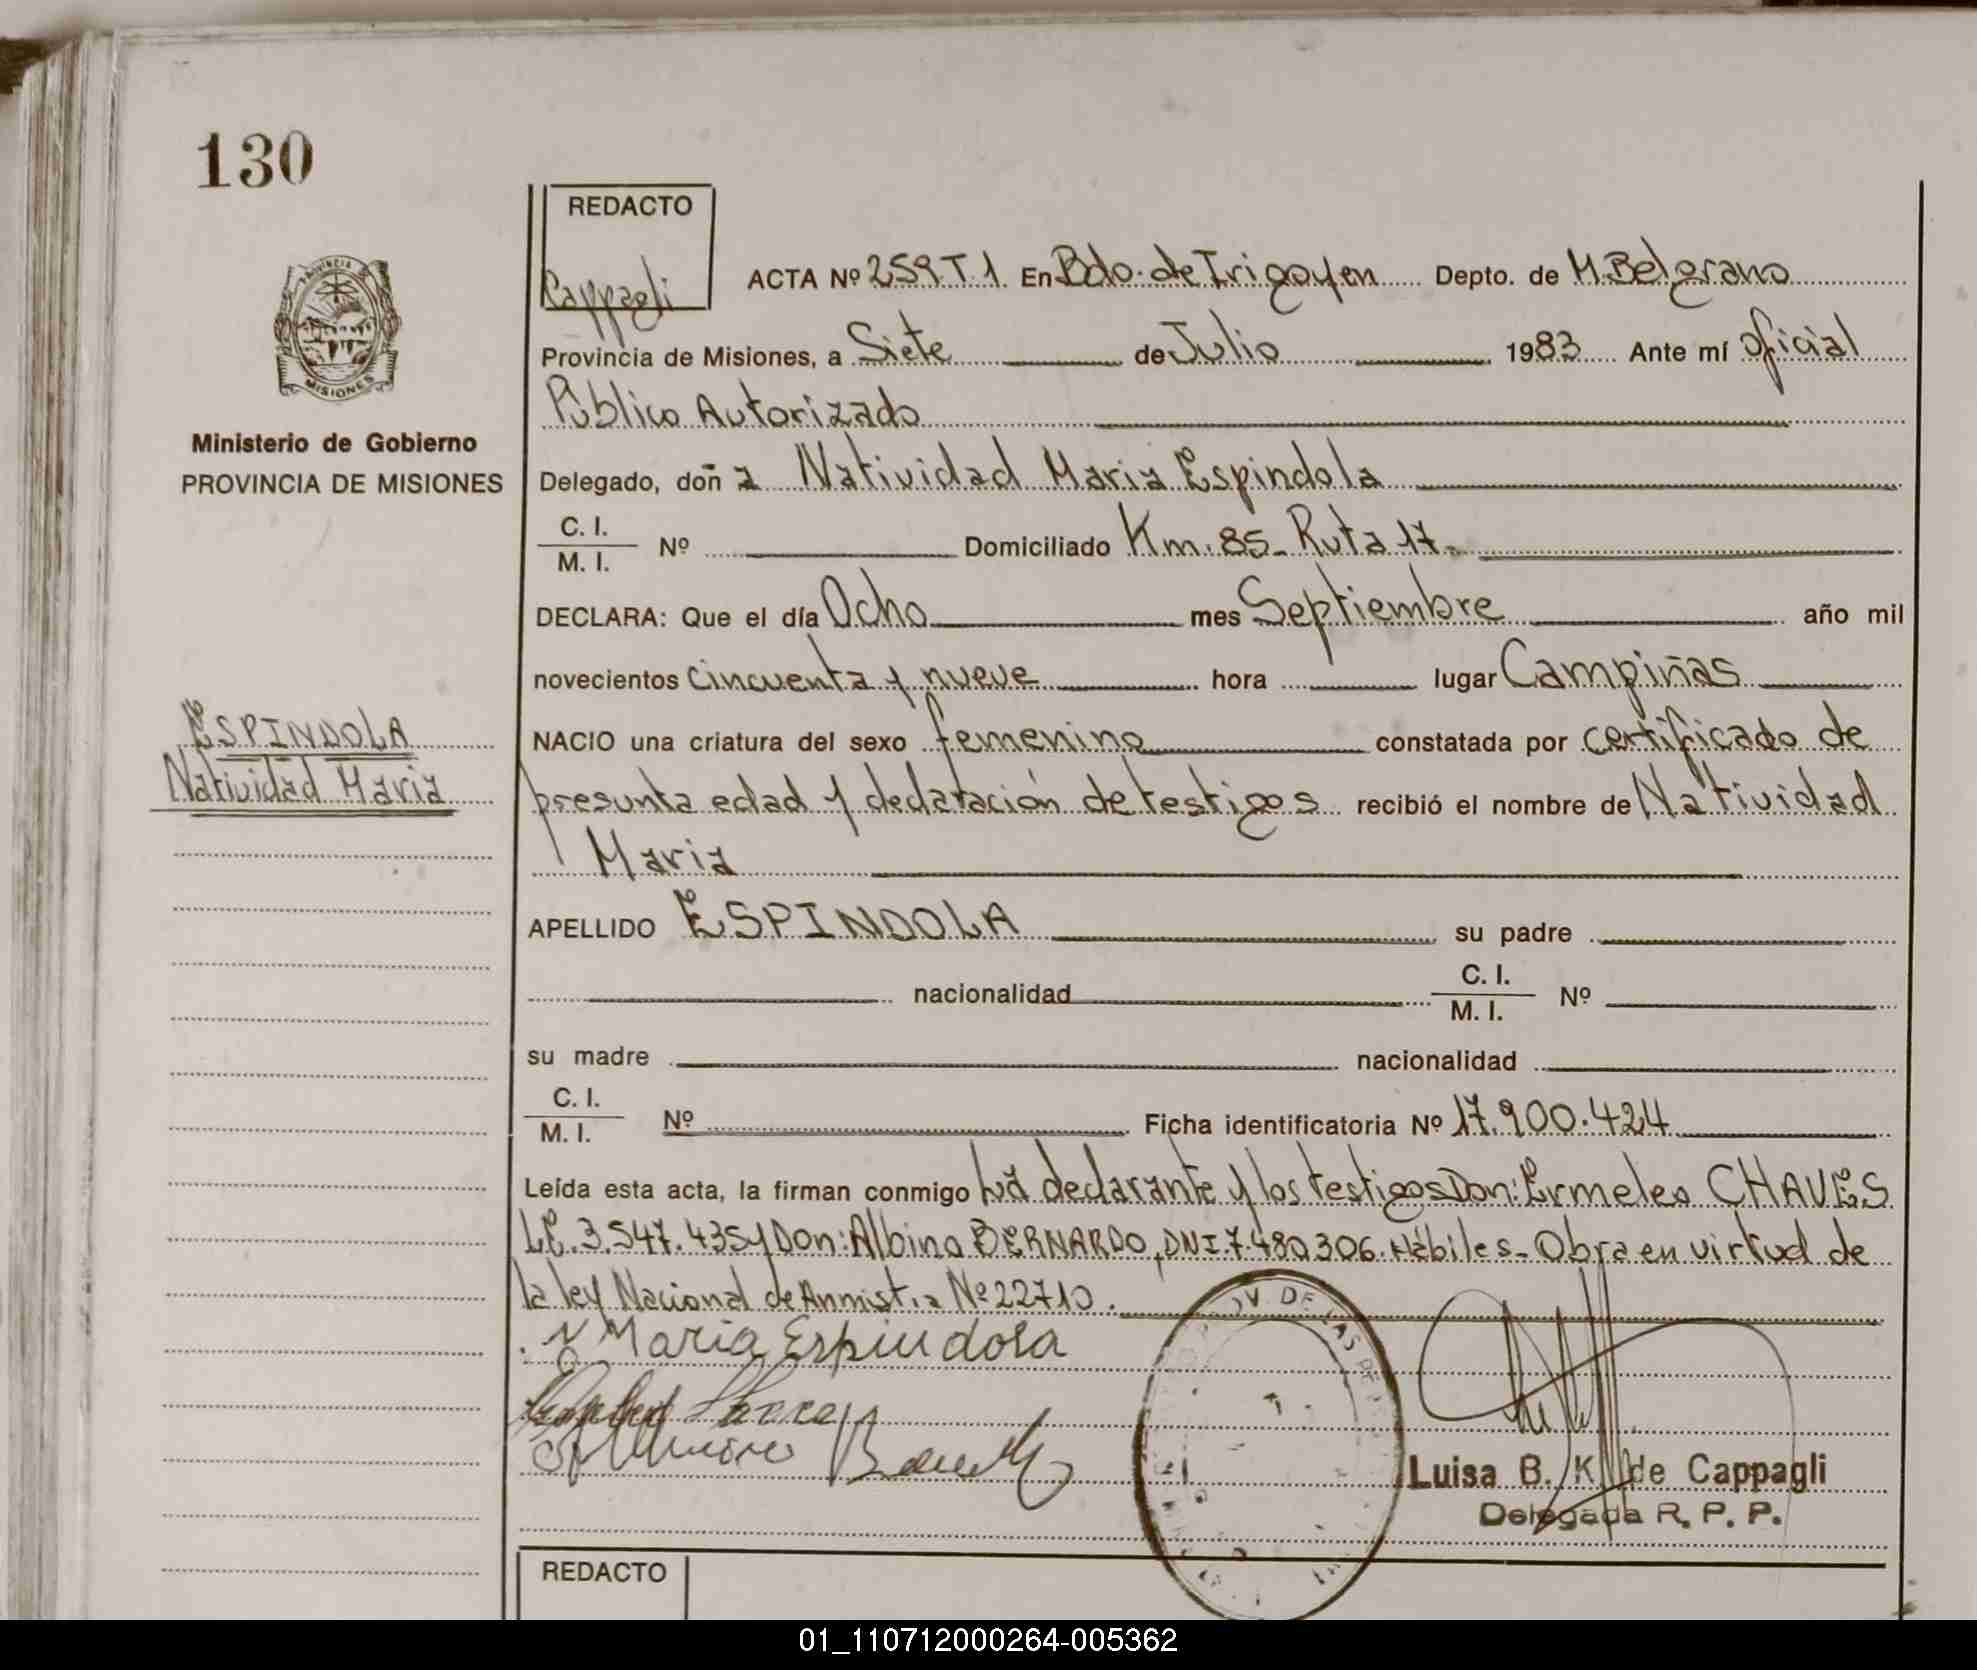 130
REDACTO
Cappagli
ACTA Nº 259 T.1 En Bdo. de Irigoyen Depto. de M. Belgrano
Provincia de Misiones, a Siete de Julio 1983 Ante mí oficial
Público Autorizado
MISIONES
Ministerio de Gobierno
PROVINCIA DE MISIONES
Delegado, doña Natividad Maria Espindola
C. I.
M. I. Nº Domiciliado Km. 85 - Ruta 17.
DECLARA: Que el día Ocho mes Septiembre año mil
novecientos cincuenta y nueve hora lugar Campiñas
ESPINDOLA
Natividad Maria
NACIO una criatura del sexo femenino constatada por certificado de
presunta edad y declaración de testigos recibió el nombre de Natividad
Maria
APELLIDO ESPINDOLA su padre
nacionalidad C. I.
M. I. Nº
su madre nacionalidad
C. I.
M. I. Nº Ficha identificatoria Nº 17.900.424
Leída esta acta, la firman conmigo La declarante y los testigos Don: Ermeleo CHAVES
L.E. 3.547.435 y Don: Albino BERNARDO, DNI. 7.480.306. Hábiles - Obra en virtud de
la ley Nacional de Anmistia Nº 22710.
N Maria Espindola
Luisa B. K. de Cappagli
Delegada R. P. P.
REDACTO
01_110712000264-005362